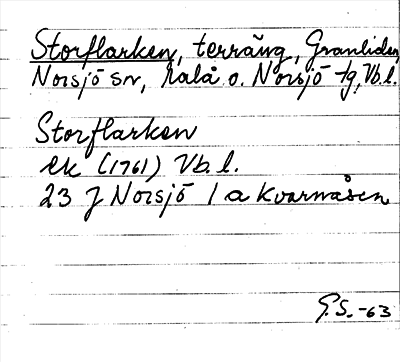 Storflarken, terräng, Granliden,
Norsjö sn, Malå o. Norsjö tg, Vb.l.
Storflarken
ek (1761) Vb.l.
23 J Norsjö 1 a Kvarnåsen
G.S. -63